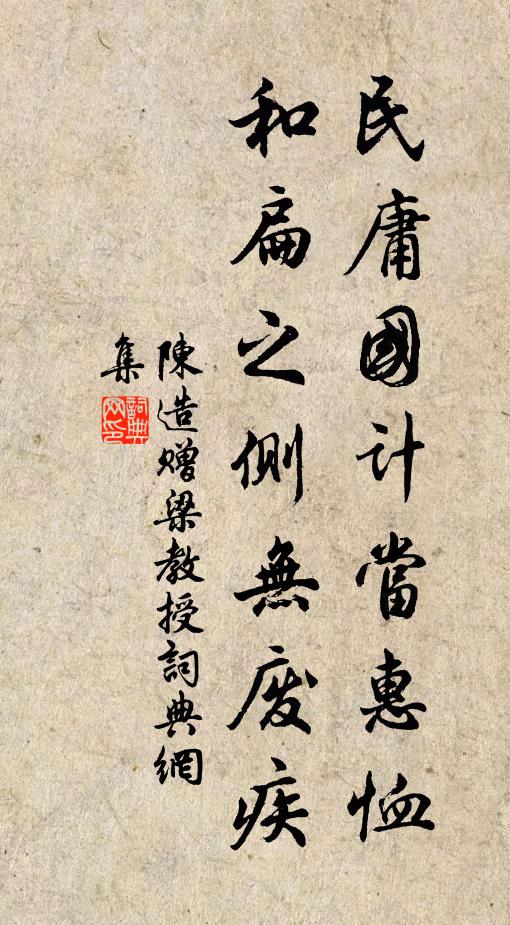 民庸國計當惠恤
和扁之側無廢疾
陳造贈梁教授詞典網
集
詞典
网印